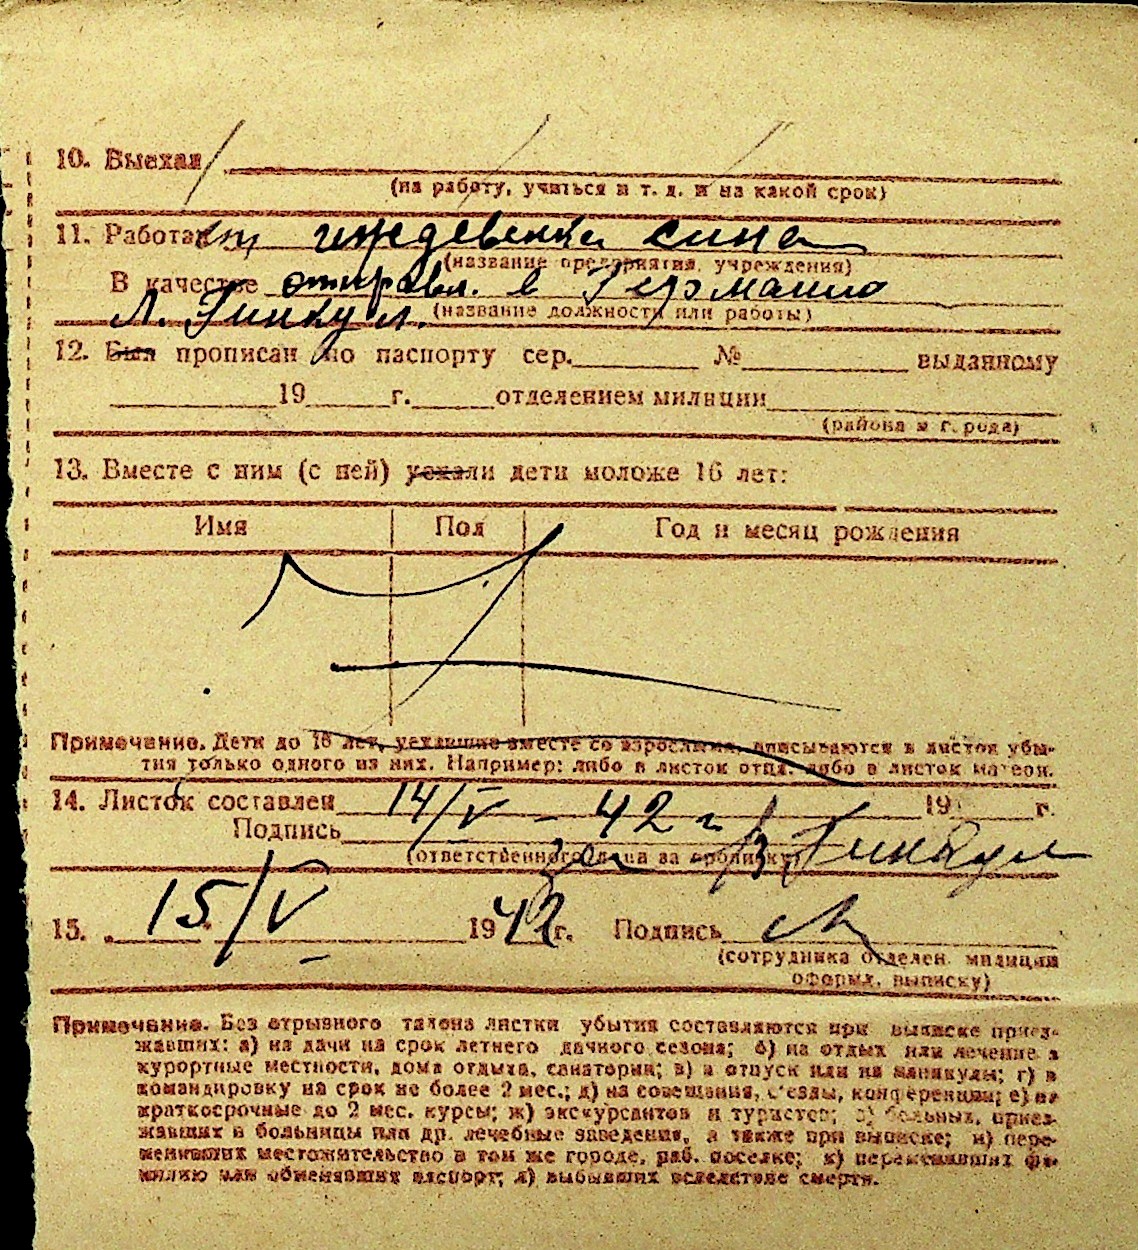 10. Выехал
(на работу, учиться и т. д. и на какой срок)
11. Работал иждевенка сина
(название предприятия, учреждения)
В качестве отправл. в Германию
Л. Гинкул. (название должности или работы)
12. Был прописан по паспорту сер. № выданному
19 г. отделением милиции
(района и города)
13. Вместе с ним (с ней) уехали дети моложе 16 лет:
Имя Пол Год и месяц рождения
Примечание. Дети до 16 лет, уехавшие вместе со взрослыми, вписываются в листок убы-
тия только одного из них. Например: либо в листок отца, либо в листок матери.
14. Листок составлен 14/V – 42 г 19 г.
Подпись за Гинкул
(ответственного лица за прописку)
15. 15/V 1942 г. Подпись
(сотрудника отделен. милиции
оформл. выписку)
Примечание. Без отрывного талона листки убытия составляются при выписке приез-
жавших: а) на дачи на срок летнего дачного сезона; б) на отдых или лечение в
курортные местности, дома отдыха, санатории; в) в отпуск или на каникулы; г) в
командировку на срок не более 2 мес.; д) на совещания, с'езды, конференции; е) на
краткосрочные до 2 мес. курсы; ж) экскурсантов и туристов; з) больных, приез-
жавших в больницы или др. лечебные заведения, а также при выписке; и) пере-
менивших местожительство в том же городе, раб. поселке; к) переменивших фа-
милию или обменявших паспорт; л) выбывших вследствие смерти.